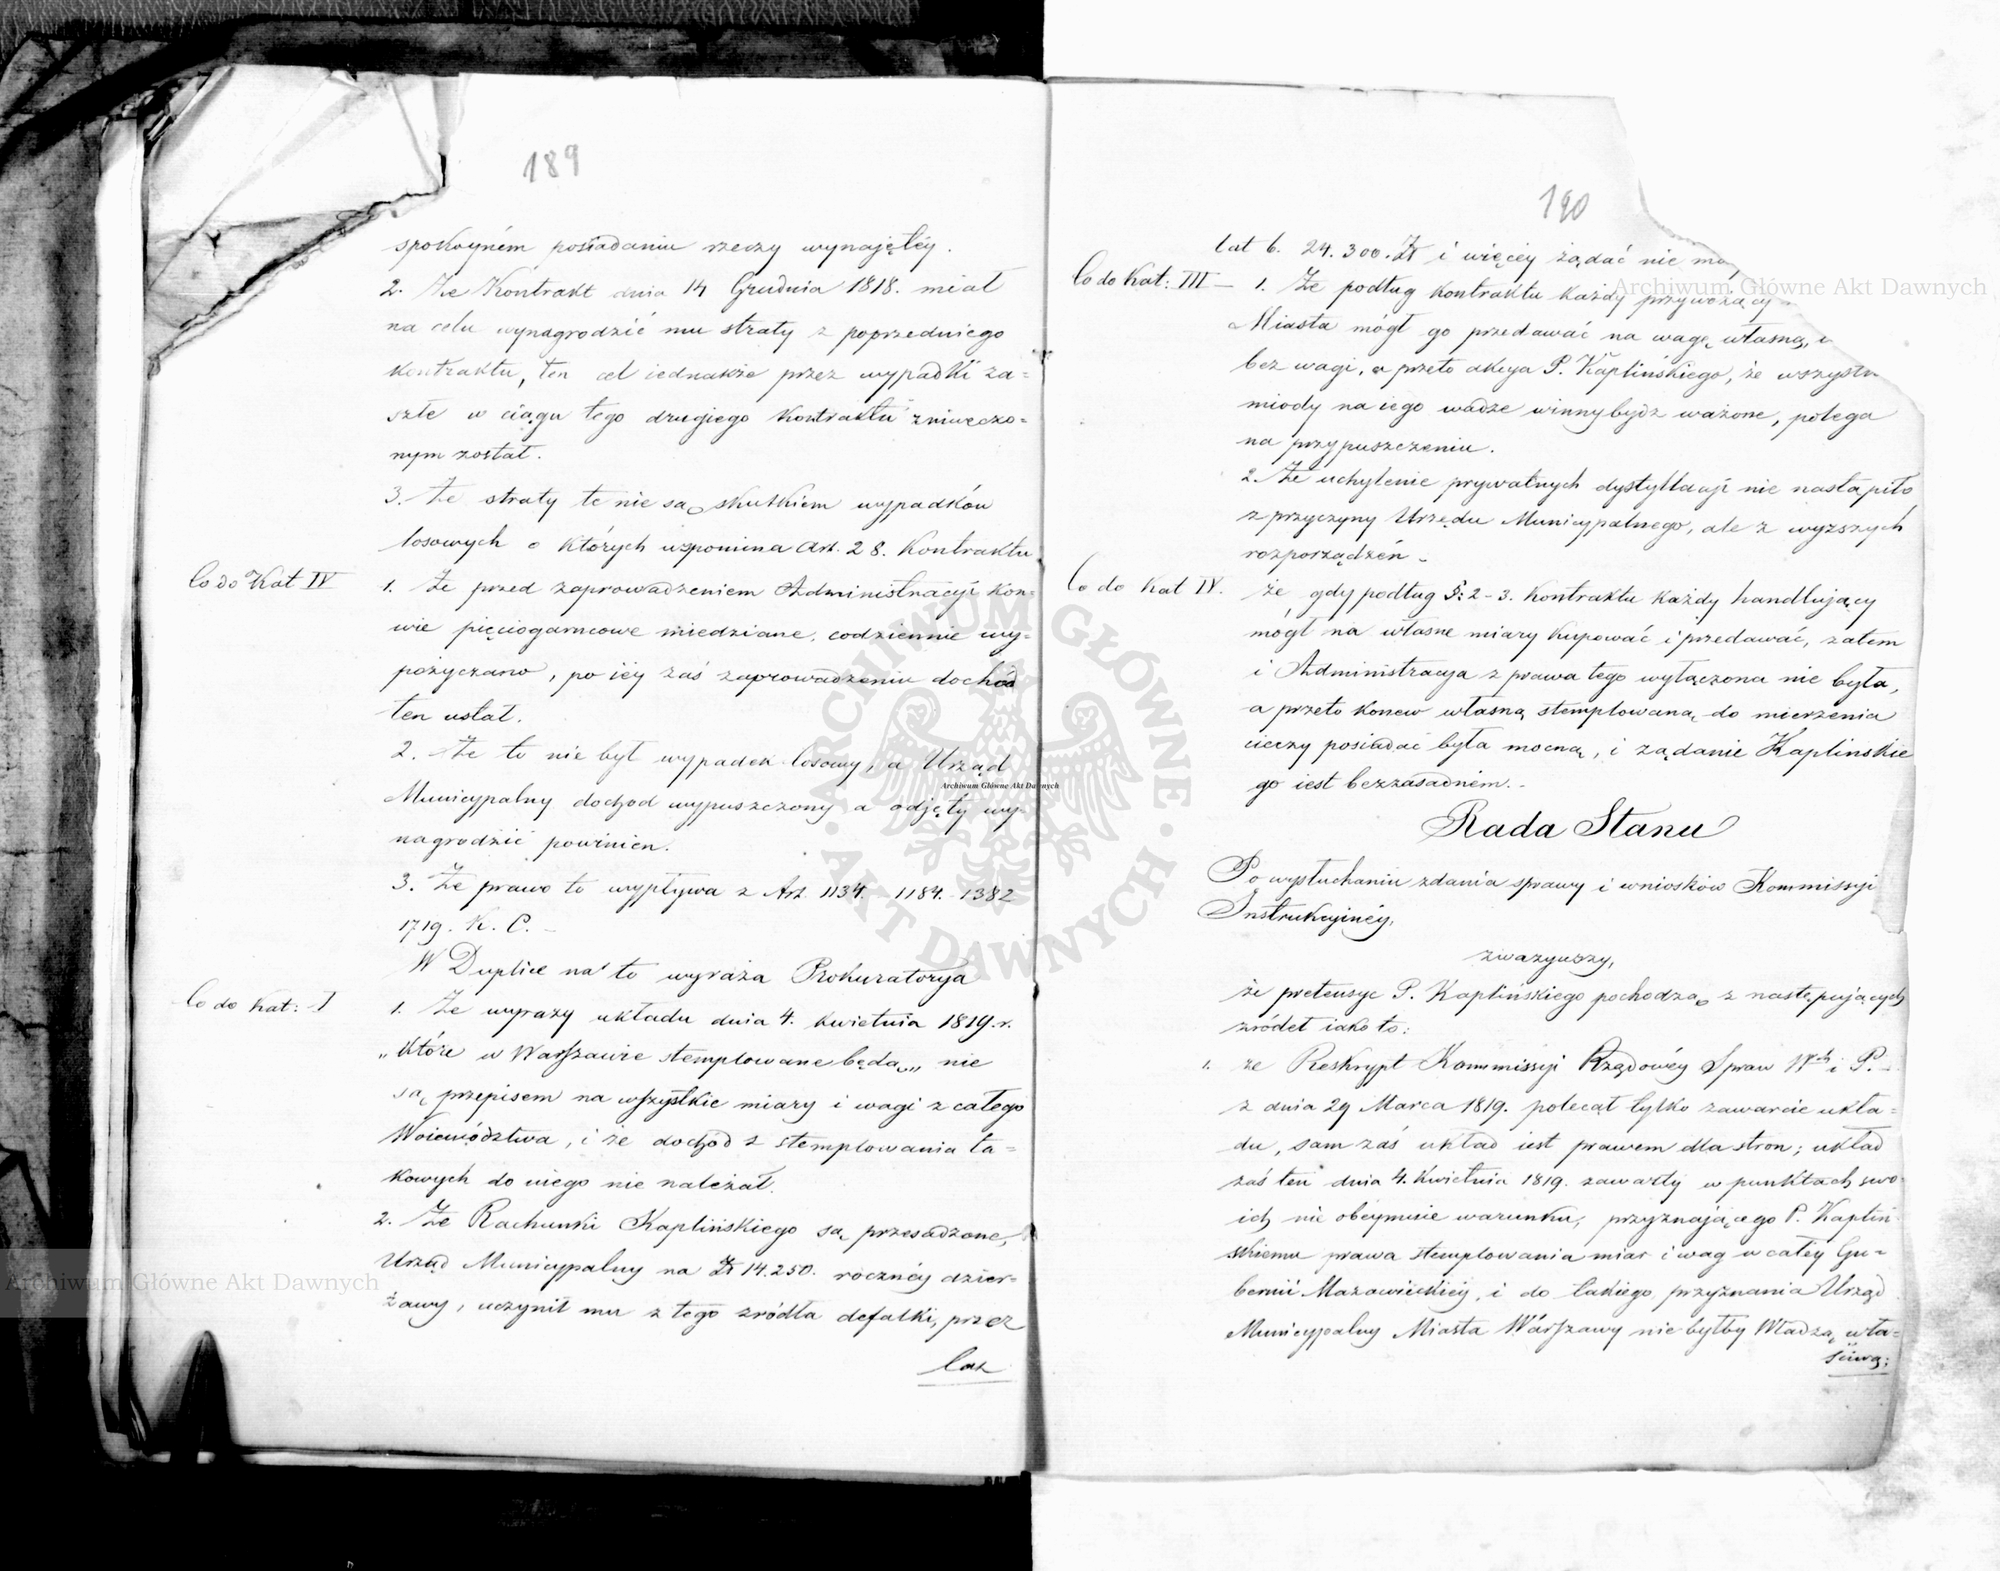 189
spokoyném posiadaniu rzeczy wynajętéy.
2. Że Kontrakt dnia 14 Grudnia 1818. miał
na celu wynagrodzić mu straty z poprzedniego
kontraktu, ten cel iednakże przez wypadki za=
szłe w ciągu tego drugiego Kontraktu zniweczo=
nym został.
3. Że straty te nie są skutkiem wypadków
losowych o których wspomina Art. 28. Kontraktu
Co do Kat IV 1. Że przed zaprowadzeniem Administracyi Kon=
wie pięciogarncowe miedziane, codziennie wy=
pożyczano, po iéy zaś zaprowadzeniu dochód
ten ustał.
2. Że to nie był wypadek losowy, a Urząd
Municypalny dochod wypuszczony a odjęty wy=
nagrodzić powinien.
3. Że prawo to wypływa z Art. 1134. - 1184. - 1382
1719. K. C. -
W Duplice na to wyraża Prokuratorya
Co do Kat: I 1. Że wyrazy układu dnia 4. Kwietnia 1819. r.
„Które w Warszawie stemplowane będą„ nie
są przepisem na wszystkie miary i wagi z całego
Woiewództwa, i że dochod z stemplowania ta=
kowych do niego nie należał.
2. Że Rachunki Kaplińskiego są przesadzone,
Urząd Municypalny na Zł 14.250. rocznéy dzier=
żawy, uczynił mu z tego zródła defalki, przez
lat
190
lat 6. 24.300. Zł i więcéy żądać nie mo
Co do Kat: III - 1. Że podług Kontraktu Każdy przywożący
Miasta mógł go przedawać na wagę własną,
bez wagi, a przeto akcya P. Kaplińskiego, że wszystk
miody na iego wadze winny bydz ważone, polega
na przypuszczeniu.
2. Że uchylenie prywatnych dystyllacyi nie nastąpiło
z przyczyny Urzędu Municypalnego, ale z wyższych
rozporządzeń -
Co do Kat IV. że, gdy podług §: 2 - 3. Kontraktu Każdy handlujący
mógł na własne miary Kupować i przedawać, zatem
i Administracya z prawa tego wyłączona nie była,
a przeto Konew własną stemplowaną do mierzenia
cieczy posiadać była mocną, i żądanie Kaplinskie
go iest bezzasadném. -
Rada Stanu
Po wysłuchaniu zdania sprawy i wniosków Kommissyi
Instrukcyinéy,
zwazywszy,
że pretensye P. Kaplińskiego pochodzą z następujących
zródeł iako to:
1. że Reskrypt Kommissyi Rządowéy Spraw Wch i P. -
z dnia 29 Marca 1819. polecał tylko zawarcie ukła=
du, sam zaś układ iest prawem dla stron; układ
zaś ten dnia 4. Kwietnia 1819. zawarty w punktach swo
ich nie obeymuie warunku, przyznającego P. Kapliń
skiemu prawa stemplowania miar i wag w całéy Gu=
bernii Mazowieckiéy, i do takiego przyznania Urząd
Municypalny Miasta Warszawy nie byłby Władzą wła=
ściwą;
Archiwum Główne Akt Dawnych
Archiwum Główne Akt Dawnych
Archiwum Główne Akt Dawnych
ARCHIWUM GŁÓWNE · AKT DAWNYCH ·